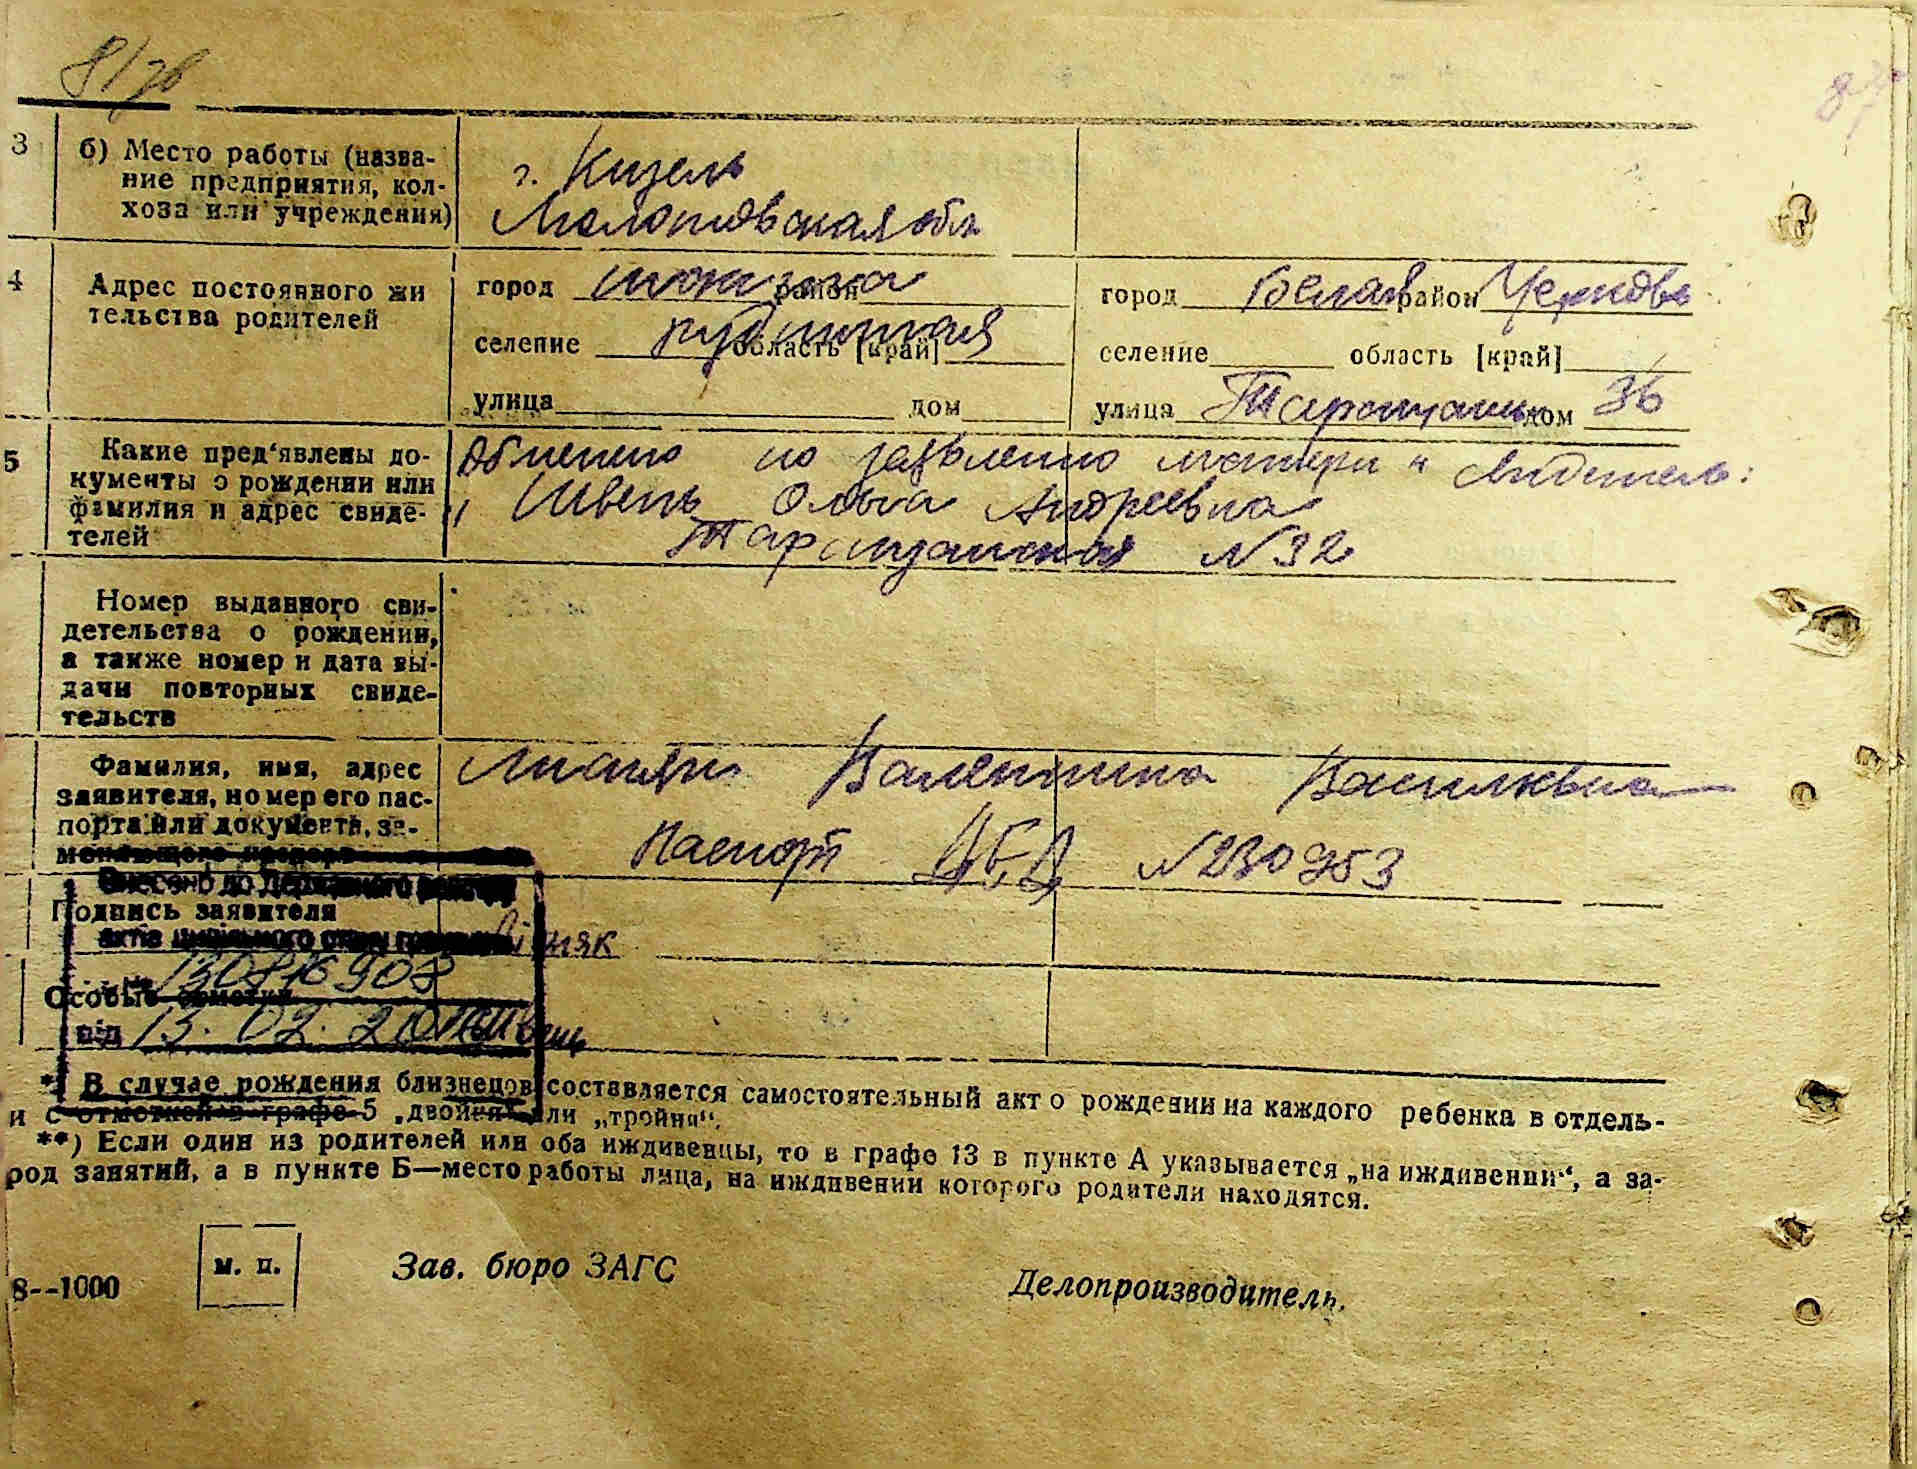 3 б) Место работы (назва-
ние предприятия, кол-
хоза или учреждения)
г. Кизель
Молотовская обл
4 Адрес постоянного жи
тельства родителей
город район
селение область [край]
улица дом
город Белая район Церковь
селение область [край]
улица дом 36
5 Какие пред‘явлены до-
кументы о рождении или
фамилия и адрес свиде-
телей
по заявлению матери и
Швець Ольга Андреевна
Таращанская N 32
Номер выданного сви-
детельства о рождении,
а также номер и дата вы-
дачи повторных свиде-
тельств
Фамилия, имя, адрес
заявителя, номер его пас-
порта или документа, за-
меняющего
Валентина Васильевна
Паспорт N 230953
Внесено до Державного реєстру
Подпись заявителя
актів цивільного стану громадян
№
Особые отметки
від 13. 02. Швець
*) В случае рождения близнецов составляется самостоятельный акт о рождении на каждого ребенка в отдель-
и с отметкой в графе 5 „двойня“ или „тройня“.
**) Если один из родителей или оба иждивенцы, то в графе 13 в пункте А указывается „на иждивении“, а за-
род занятий, а в пункте Б—место работы лица, на иждивении которого родители находятся.
м. п.
Зав. бюро ЗАГС
Делопроизводитель.
8--1000